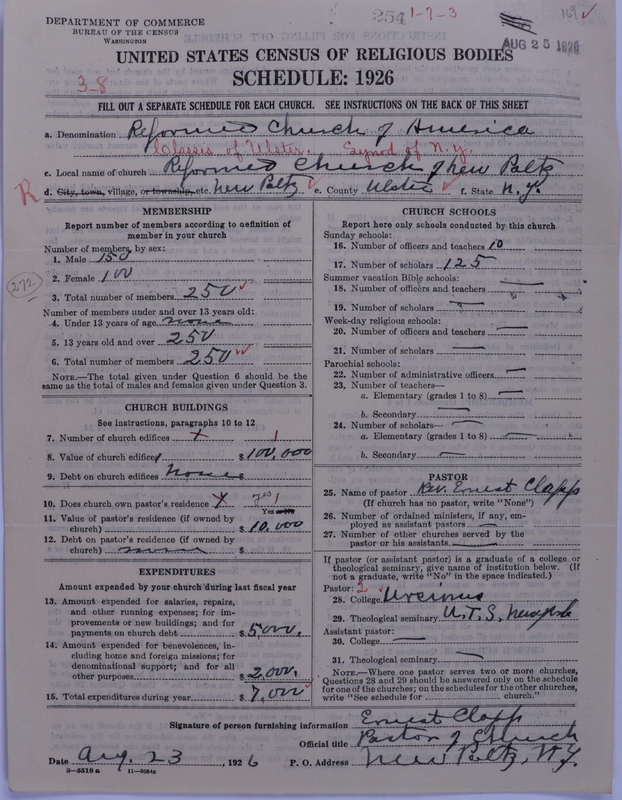 DEPARTMENT OF COMMERCE
BUREAU OF THE CENSUS
WASHINGTON
254 1-7-3
169
AUG 25 1926
UNITED STATES CENSUS OF RELIGIOUS BODIES
3-8
SCHEDULE: 1926
FILL OUT A SEPARATE SCHEDULE FOR EACH CHURCH. SEE INSTRUCTIONS ON THE BACK OF THIS SHEET
a. Denomination Reformed Church of America
Classis of Ulster. Synod of N.Y.
c. Local name of church Reformed Church of New Paltz
R
d. City, town, village, or township, etc. New Paltz e. County Ulster f. State N.Y.
MEMBERSHIP
Report number of members according to definition of
member in your church
Number of members, by sex:
1. Male 150
2. Female 100
272
3. Total number of members 250
Number of members under and over 13 years old:
4. Under 13 years of age none
5. 13 years old and over 250
6. Total number of members 250
NOTE.—The total given under Question 6 should be the
same as the total of males and females given under Question 3.
CHURCH BUILDINGS
See instructions, paragraphs 10 to 12
7. Number of church edifices 1
8. Value of church edifices $100,000
9. Debt on church edifices none $
10. Does church own pastor's residence yes 1
Yes or No
11. Value of pastor's residence (if owned by
church) $10,000
12. Debt on pastor's residence (if owned by
church) none $
EXPENDITURES
Amount expended by your church during last fiscal year
13. Amount expended for salaries, repairs,
and other running expenses; for im-
provements or new buildings; and for
payments on church debt $5,000.
14. Amount expended for benevolences, in-
cluding home and foreign missions; for
denominational support; and for all
other purposes $2,000.
15. Total expenditures during year $7,000
CHURCH SCHOOLS
Report here only schools conducted by this church
Sunday schools:
16. Number of officers and teachers 10
17. Number of scholars 125
Summer vacation Bible schools:
18. Number of officers and teachers —
19. Number of scholars —
Week-day religious schools:
20. Number of officers and teachers —
21. Number of scholars —
Parochial schools:
22. Number of administrative officers —
23. Number of teachers—
a. Elementary (grades 1 to 8) —
b. Secondary —
24. Number of scholars— —
a. Elementary (grades 1 to 8) —
b. Secondary —
PASTOR
25. Name of pastor Rev. Ernest Clapp
(If church has no pastor, write "None")
26. Number of ordained ministers, if any, em-
ployed as assistant pastors —
27. Number of other churches served by the
pastor or his assistants —
If pastor (or assistant pastor) is a graduate of a college or
theological seminary, give name of institution below. (If
not a graduate, write "No" in the space indicated.)
Pastor: 2
28. College Ursinus
29. Theological seminary U.T.S. New York
Assistant pastor:
30. College —
31. Theological seminary —
NOTE.—Where one pastor serves two or more churches,
Questions 28 and 29 should be answered only on the schedule
for one of the churches; on the schedules for the other churches,
write "See schedule for church."
Signature of person furnishing information Ernest Clapp
Official title Pastor of Church
Date Aug. 23, 1926 P. O. Address New Paltz, N.Y.
8—5518 a 11—9054a